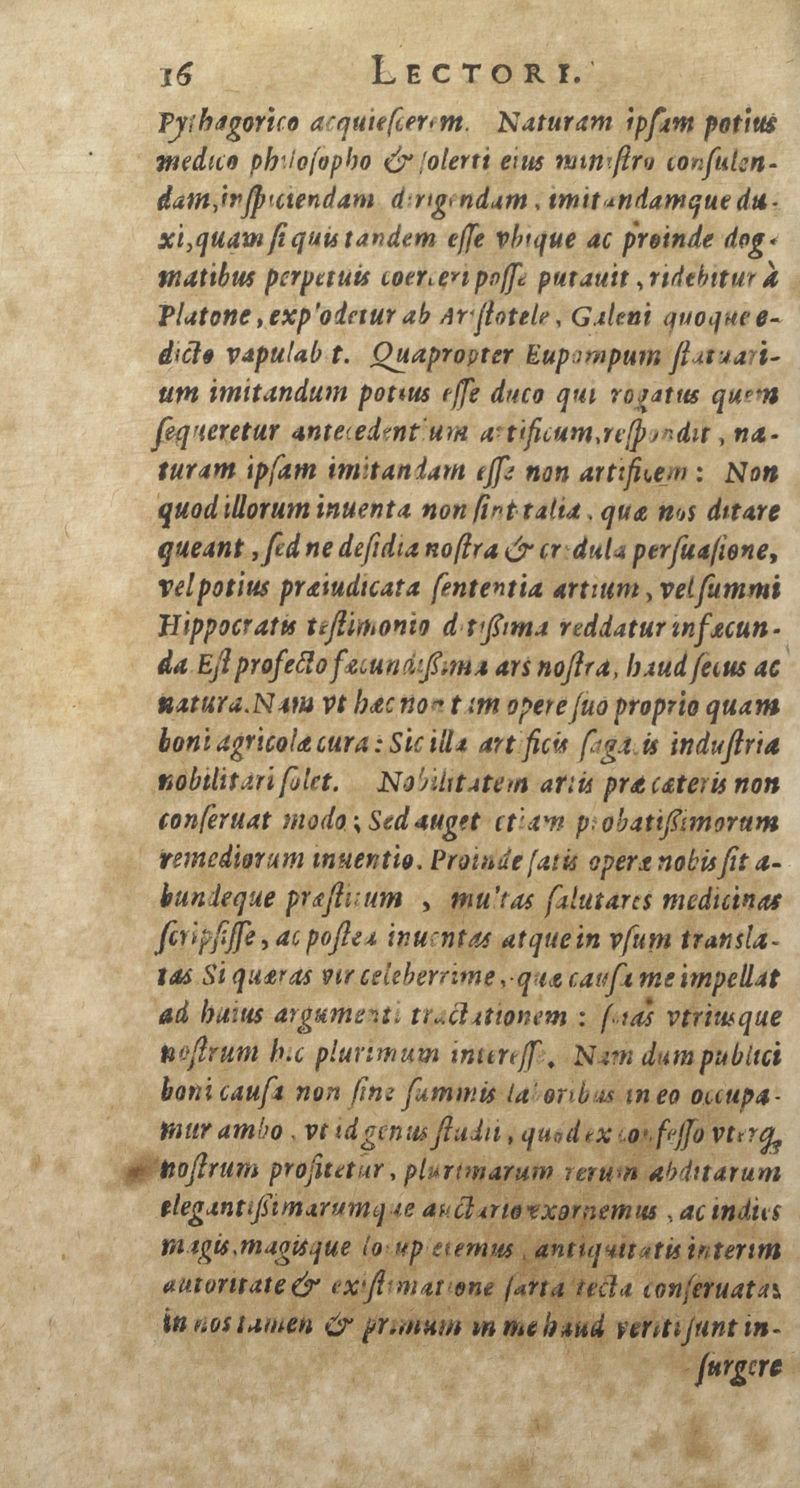 16 LECTORI.
Pythagorico acquiescerem. Naturam ipsam potius
medico philosopho & solerti eius ministro consulen-
dam, inspiciendam dirigendam, imitandamque du-
xi, quam si quis tandem esse vbique ac proinde dog-
matibus perpetuis coerceri posse putauit, ridebitur à
Platone, explodetur ab Aristotele, Galeni quoque e-
dicto vapulabit. Quapropter Eupompum statuari-
um imitandum potius esse duco qui rogatus quem
sequeretur antecedentium artificum, respondit, na-
turam ipsam imitandam esse non artificem: Non
quod illorum inuenta non sint talia, quæ nos ditare
queant, sed ne desidia nostra & credula persuasione,
vel potius præiudicata sententia artium, vel summi
Hippocratis testimonio ditissima reddatur infæcun-
da Est profecto fæcundissima ars nostra, haud secus ac
natura. Nam vt hæc non tam opere suo proprio quam
boni agricolæ cura: Sic illa artificis sagacis industria
nobilitari solet. Nobilitatem artis præ cæteris non
conseruat modo; Sed auget etiam probatissimorum
remediorum inuentio. Proinde satis operæ nobis sit a-
bundeque præstitum, multas salutares medicinas
scripsisse, ac postea inuentas atque in vsum transla-
tas Si quæras vir celeberrime, quæ causa me impellat
ad huius argumenti tractationem: vtriusque
nostrum hic plurimum interesse. Nam dum publici
boni causa non sine summis laboribus in eo occupa-
mur ambo, vt id genus studii, quod ex confesso vterq;
nostrum profitetur, plurimarum rerum abditarum
elegantissimarumque auctario exornemus, ac indies
magis, magisque locupletemus antiquitatis interim
autoritate & existimatione sarta tecta conseruata:
in nos tamen & primum in me haud veriti sunt in-
surgere